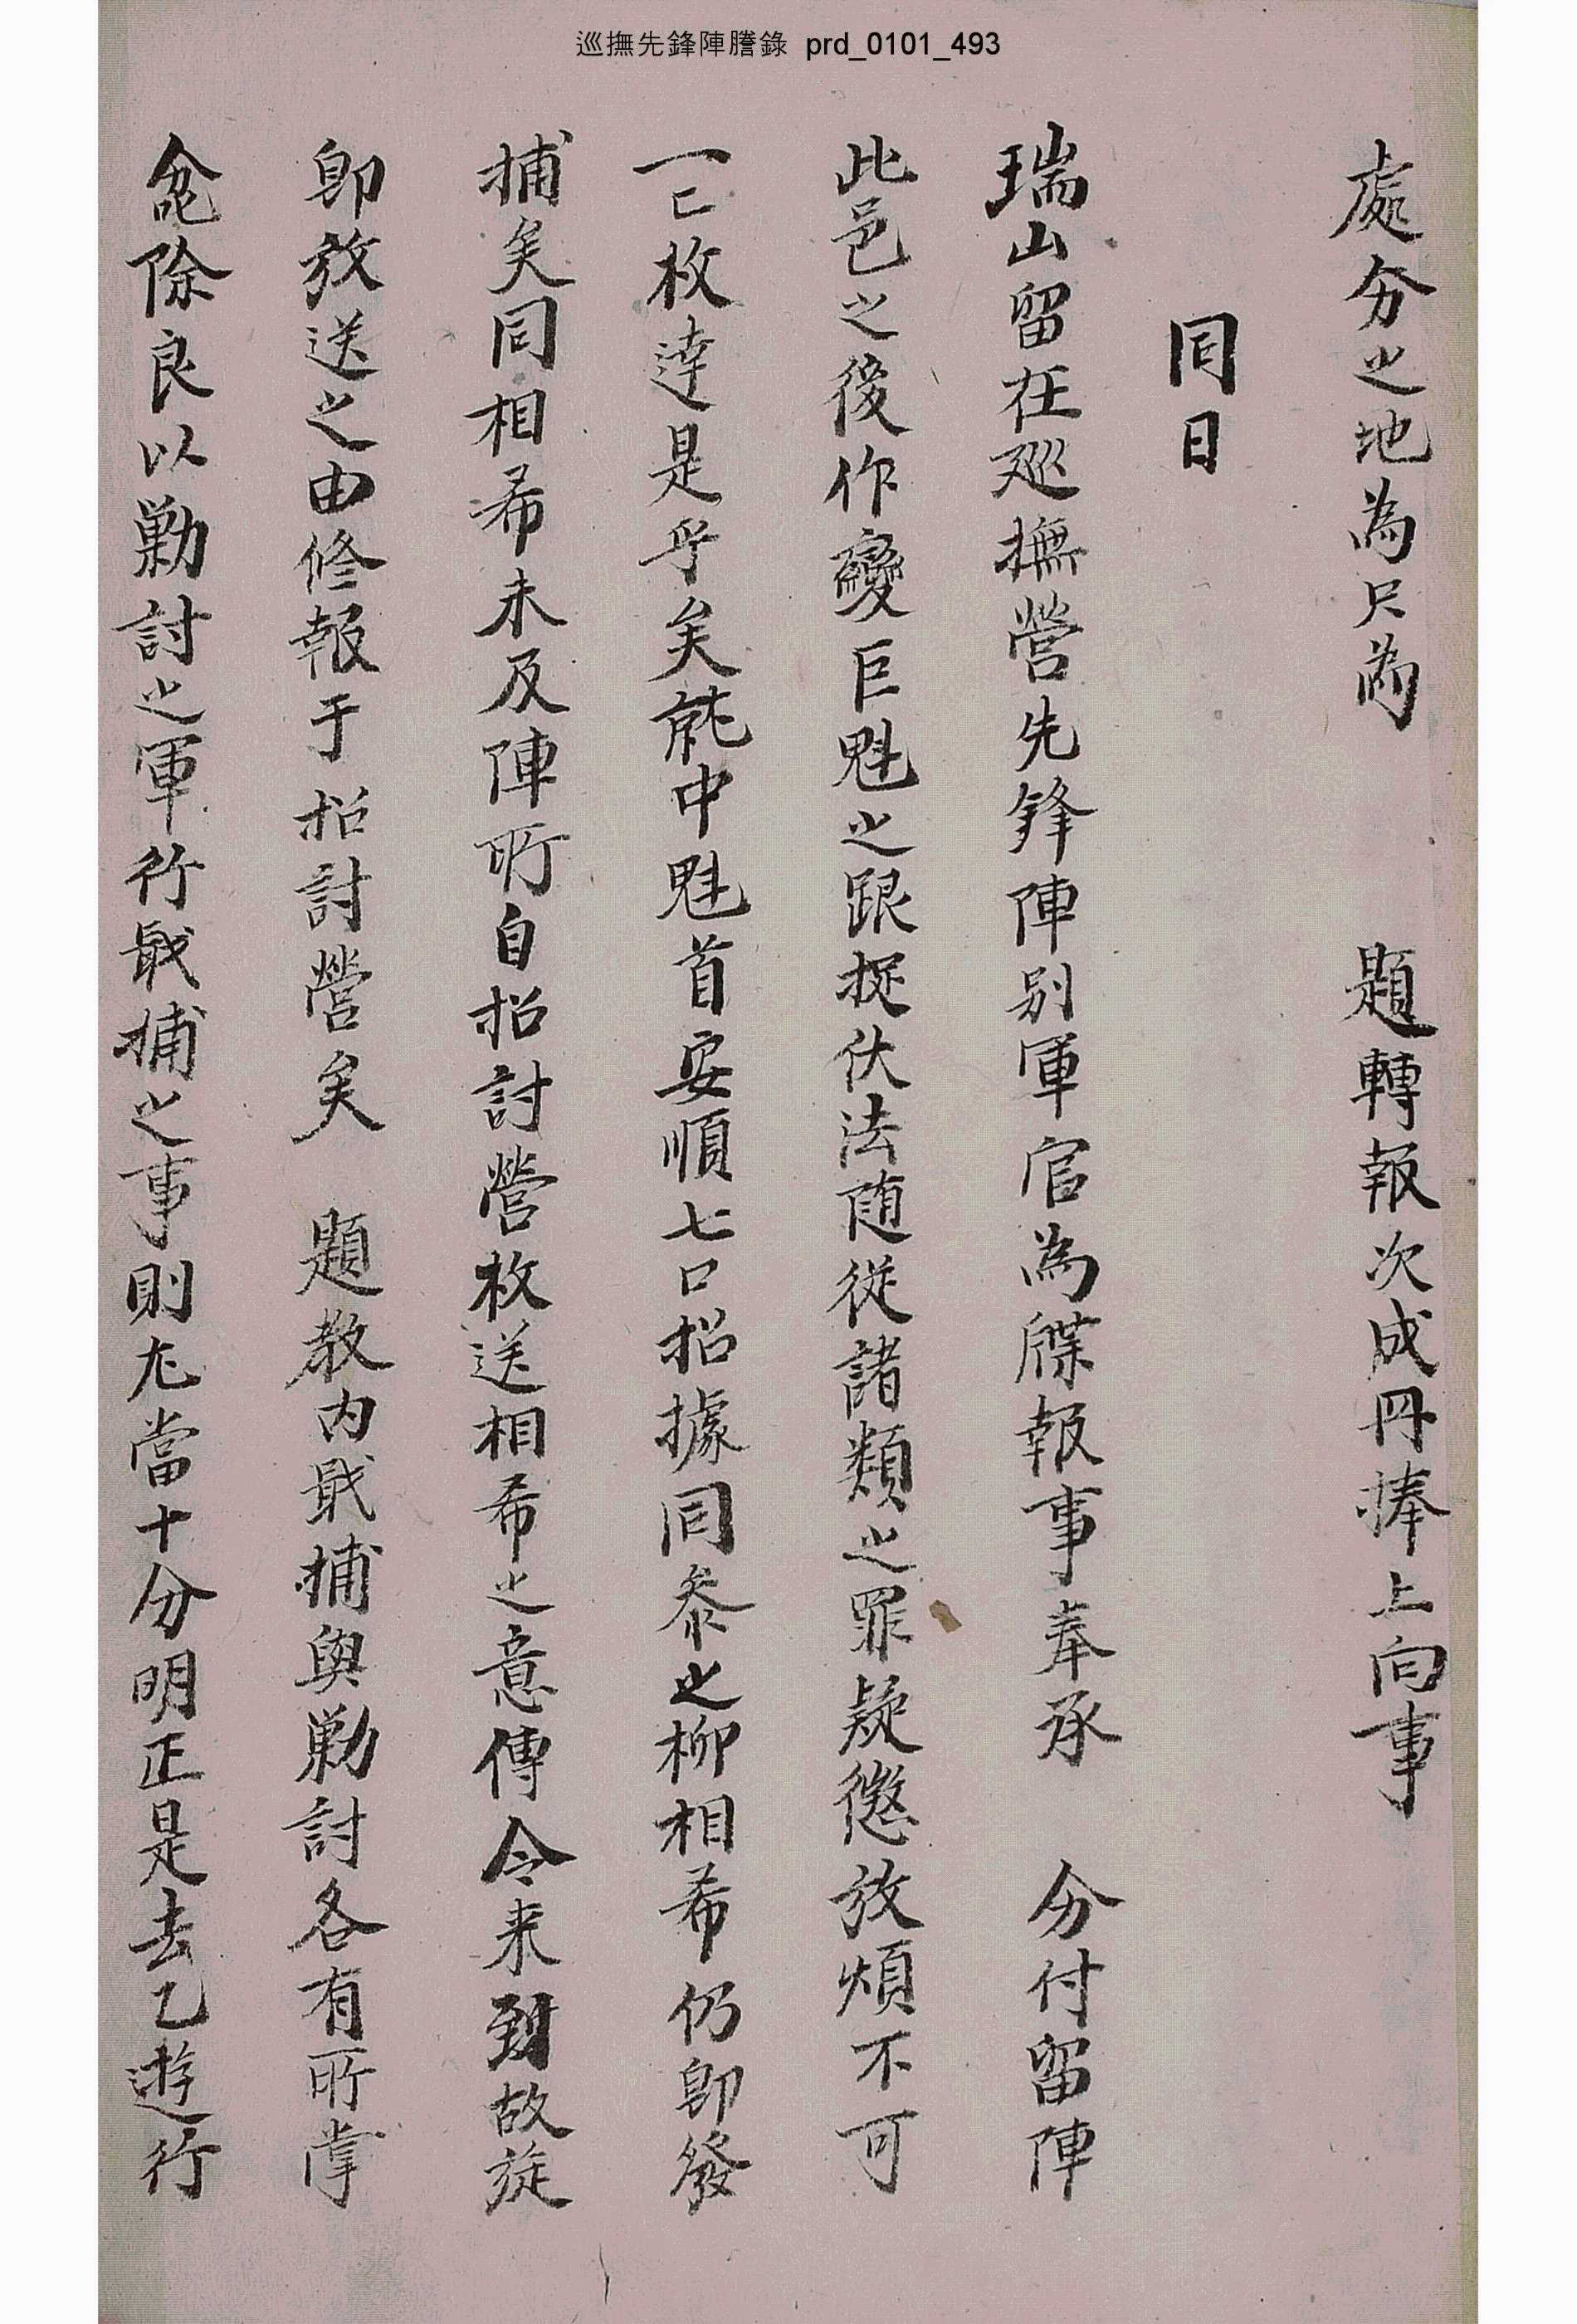 巡撫先鋒陣謄錄 prd_0101_493
處分之地為只為 題轉報次成冊捧上向事
同日
瑞山留在廵撫營先鋒陣別軍官為牒報事奉承 分付留陣
此邑之後作變巨魁之跟捉伏法随從諸類之罪疑懲放煩不可
一已枚達是乎矣就中魁首安順七口招據同叅之柳相希仍卽發
捕矣同相希未及陣所自招討營枚送相希之意傳令来到故旋
卽放送之由修報于招討營矣 題敎內戢捕與勦討各有所掌
兺除良以勦討之軍行戢捕之事則尤當十分明正是去乙遊行